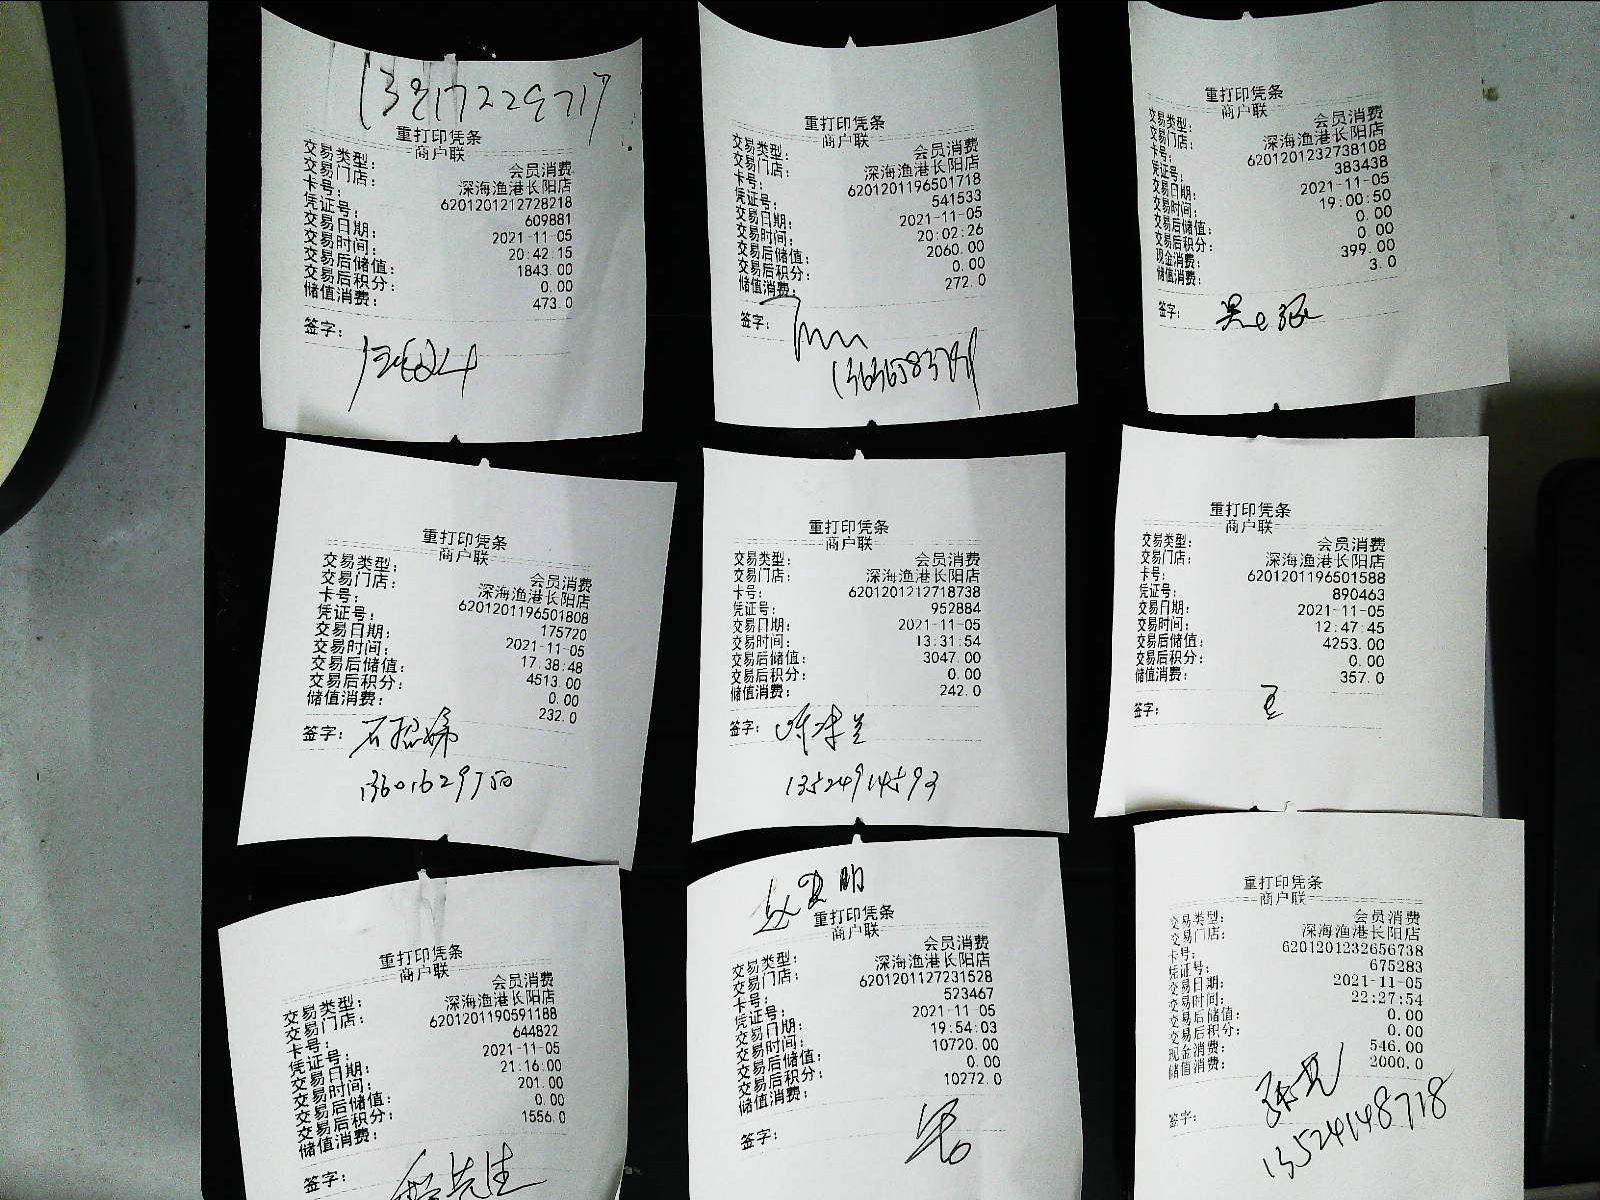 13817229717
重打印凭条
商户联
交易类型： 会员消费
交易门店： 深海渔港长阳店
卡号： 6201201212728218
凭证号： 609881
交易日期： 2021-11-05
交易时间： 20:42:15
交易后储值： 1843.00
交易后积分： 0.00
储值消费： 473.0
签字：
重打印凭条
商户联
交易类型： 会员消费
交易门店： 深海渔港长阳店
卡号： 6201201196501718
凭证号： 541533
交易日期： 2021-11-05
交易时间： 20:02:26
交易后储值： 2060.00
交易后积分： 0.00
储值消费： 272.0
签字：
重打印凭条
商户联
交易类型： 会员消费
交易门店： 深海渔港长阳店
卡号： 6201201232738108
凭证号： 383438
交易日期： 2021-11-05
交易时间： 19:00:50
交易后储值： 0.00
交易后积分： 0.00
现金消费： 399.00
储值消费： 3.0
签字：
重打印凭条
商户联
交易类型： 会员消费
交易门店： 深海渔港长阳店
卡号： 6201201196501808
凭证号： 175720
交易日期： 2021-11-05
交易时间： 17:38:48
交易后储值： 4513.00
交易后积分： 0.00
储值消费： 232.0
签字： 石招娣
13601629750
重打印凭条
商户联
交易类型： 会员消费
交易门店： 深海渔港长阳店
卡号： 6201201212718738
凭证号： 952884
交易日期： 2021-11-05
交易时间： 13:31:54
交易后储值： 3047.00
交易后积分： 0.00
储值消费： 242.0
签字：
13524914593
重打印凭条
商户联
交易类型： 会员消费
交易门店： 深海渔港长阳店
卡号： 6201201196501588
凭证号： 890463
交易日期： 2021-11-05
交易时间： 12:47:45
交易后储值： 4253.00
交易后积分： 0.00
储值消费： 357.0
签字： 王
重打印凭条
商户联
交易类型： 会员消费
交易门店： 深海渔港长阳店
卡号： 6201201190591188
凭证号： 644822
交易日期： 2021-11-05
交易时间： 21:16:00
交易后储值： 201.00
交易后积分： 0.00
储值消费： 1556.0
签字： 先生
重打印凭条
商户联
交易类型： 会员消费
交易门店： 深海渔港长阳店
卡号： 6201201127231528
凭证号： 523467
交易日期： 2021-11-05
交易时间： 19:54:03
交易后储值： 10720.00
交易后积分： 0.00
储值消费： 10272.0
签字：
重打印凭条
商户联
交易类型： 会员消费
交易门店： 深海渔港长阳店
卡号： 6201201232656738
凭证号： 675283
交易日期： 2021-11-05
交易时间： 22:27:54
交易后储值： 0.00
交易后积分： 0.00
现金消费： 546.00
储值消费： 2000.0
签字：
13524148718